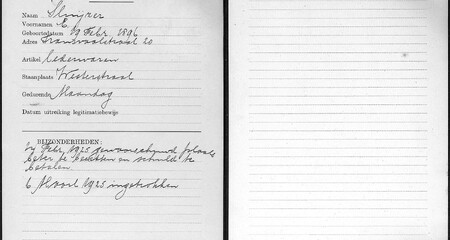 Naam Sluijzer
Voornamen E.
Geboortedatum 19 Febr. 1896
Adres Transvaalstraat 20
Artikel Lederwaren
Staanplaats Westerstraat
Gedurende Maandag
Datum uitreiking legitimatiebewijs
BIJZONDERHEDEN:
Febr. 1925 gewaarschuwd plaats
beter te bezetten en schuld te
betalen
6 Maart 1925 ingetrokken